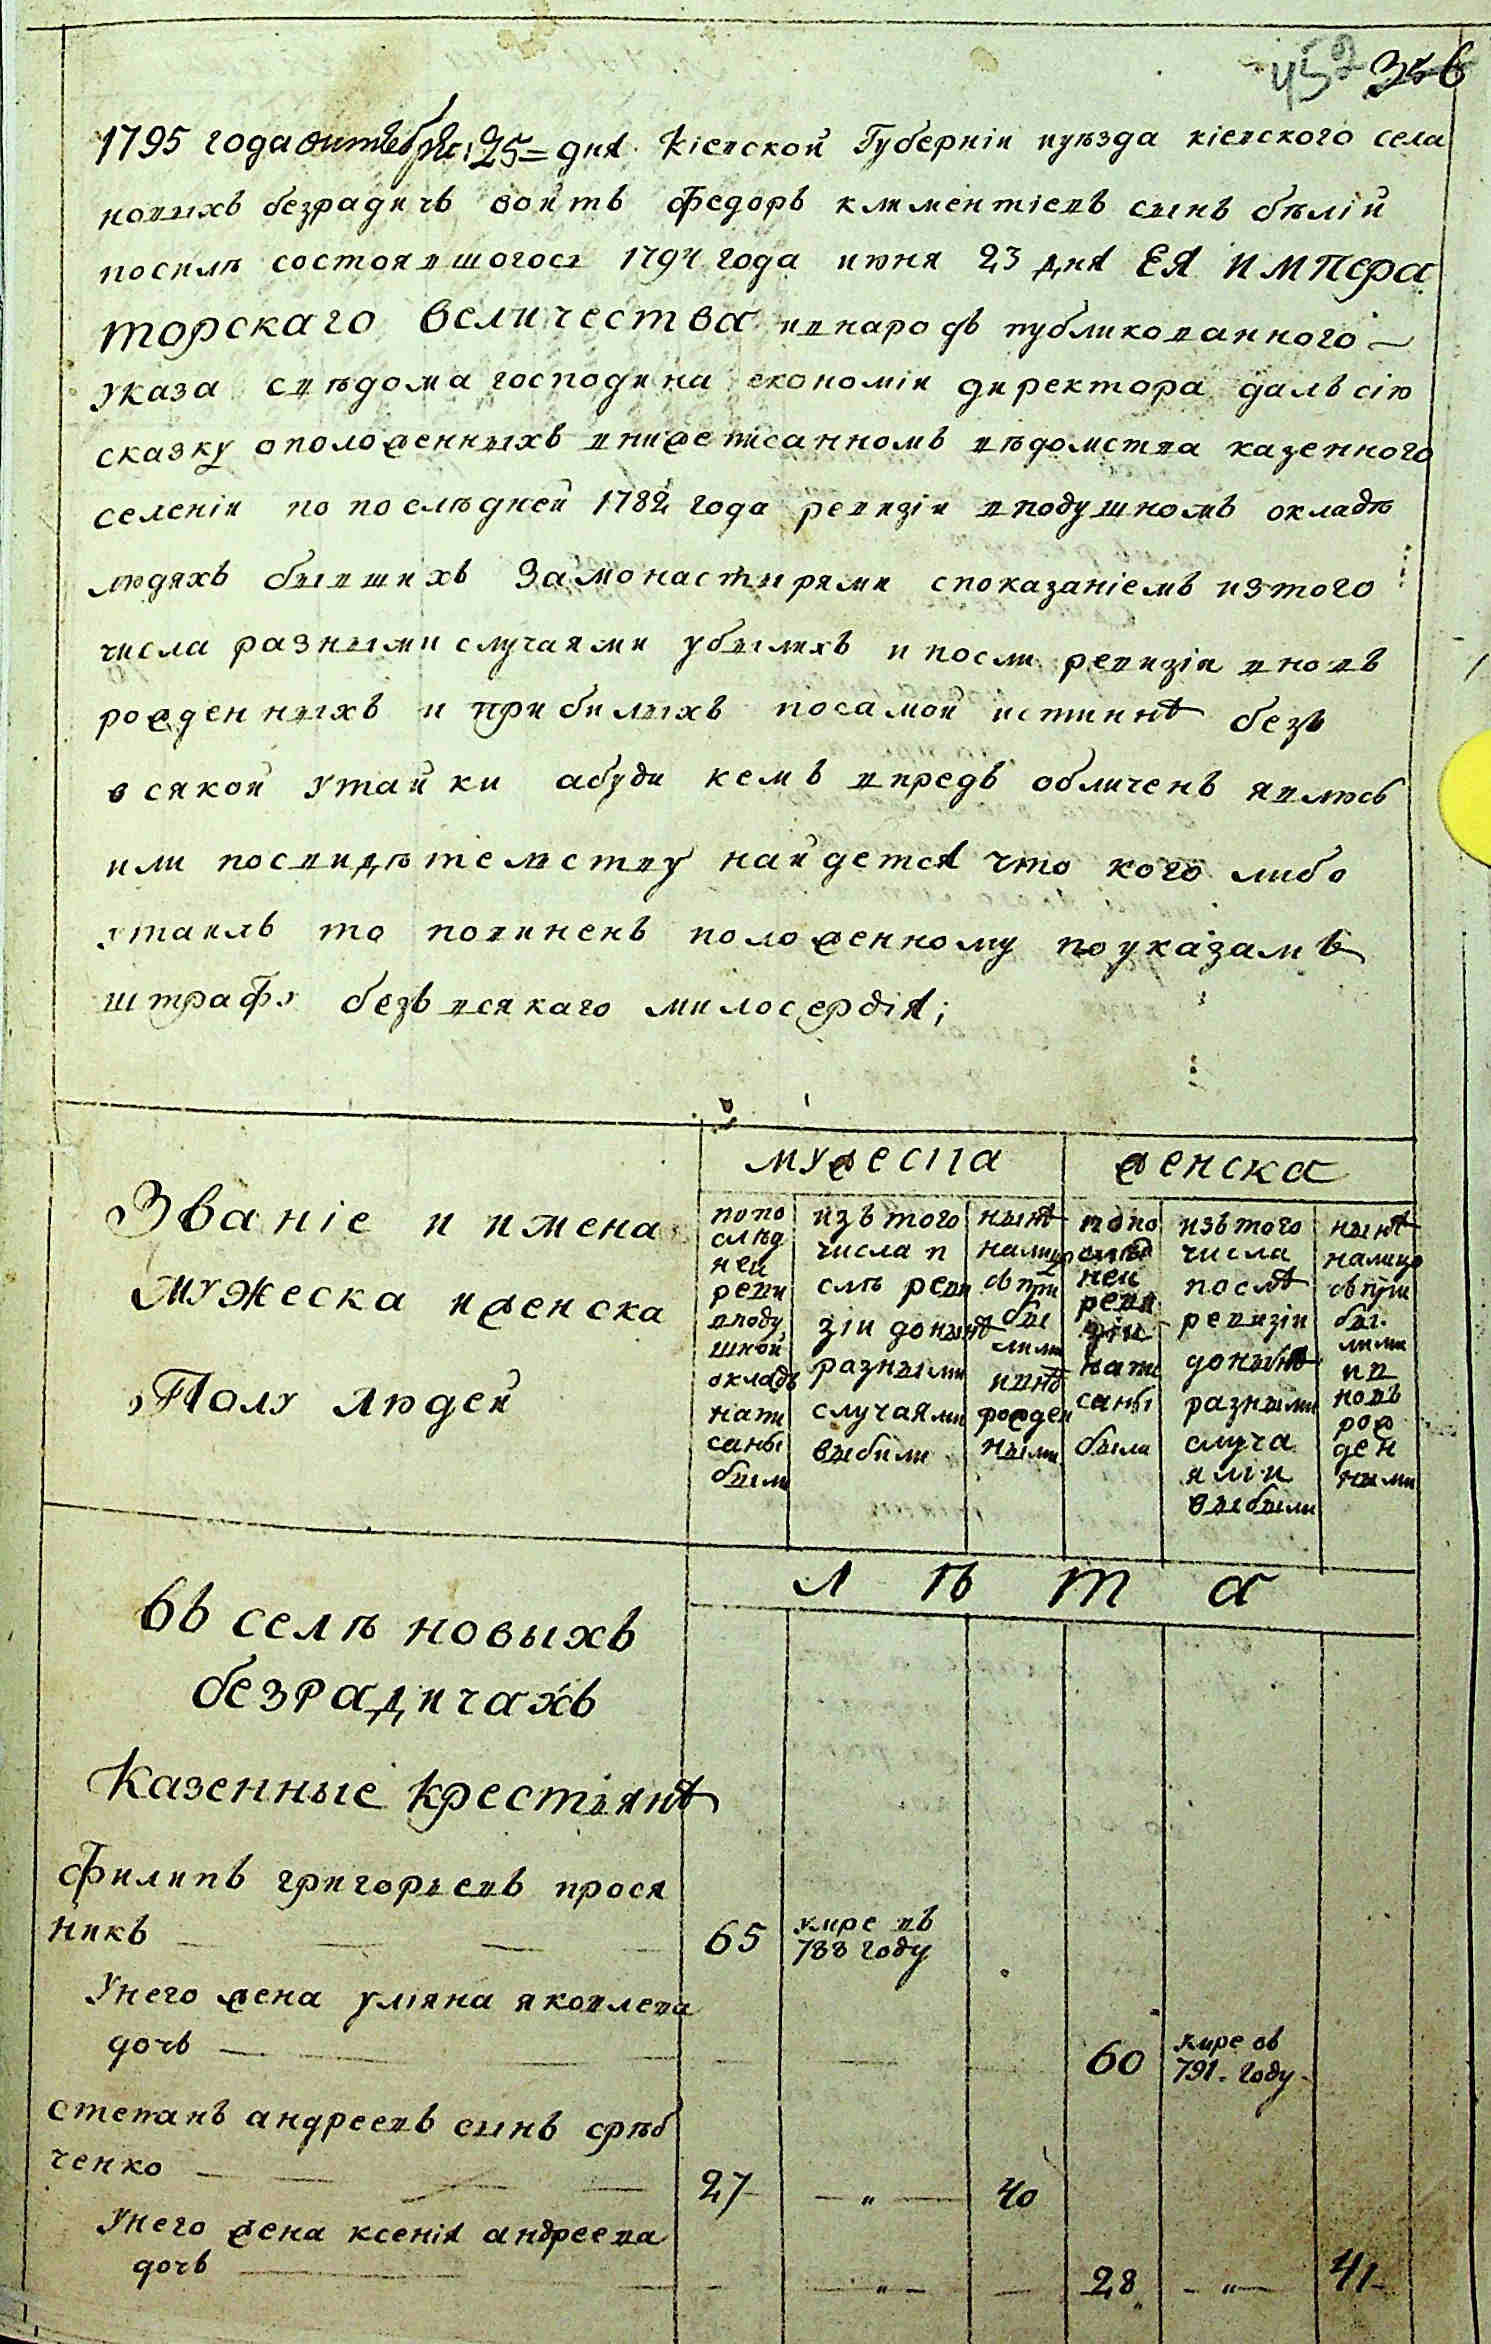 452 356
1795 года октебря 25= дня Кіевской Губерніи иуѣзда кіевского села
новыхъ безрадичъ войтъ Федоръ климентіевъ сынъ бѣлій
посилѣ состоявшогось 1794 года июня 23 дня ЕЯ ИМПера
торскаго величества ивнародъ публикованного
указа свѣдома господина економіи директора далъ сію
сказку оположенныхъ внижеписанномъ вѣдомства казенного
селеніи по послѣдней 1782 года ревизіи вподушномъ окладѣ
людяхъ бывшихъ Замонастирями споказаніемъ изтого
числа разными случаями убылихъ и посли ревизіи вновъ
рожденныхъ и прибилыхъ посамой истиннѣ безъ
всякой утайки абуди кемъ впредь обличенъ явлюсь
или посвидѣтельству найдется что кого либо
утаилъ то повиненъ положенному поуказамъ
штрафу безъ всякаго милосердія;
мужеска женска
Званіе и имена
мужеска иженска
Полу людей
попо слѣд ней реви вподу шной окладъ напи саны были
изъ того числа п слѣ реви зіи донынѣ разными случаями выбили
нынѣ налицо съ при бы лими ивнѣ рожден ными
попо слѣд ней реви зіи напи саны были
изъ того числа послѣ ревизіи донынѣ разными случа ями выбыли
нынѣ налицо съ при бы лими ив новъ рож ден ными
л ѣ т а
въ селѣ новыхъ
безрадичахъ
Казенные крестьянѣ
Филипъ григорьевъ прося
никъ 65 умре въ 788 году
Унего жена уляна яковлева
дочь 60 умре въ 791. году
степанъ андреевъ сынъ срѣб
ченко 27 — „ — 40
Унего жена ксенія андреева
дочь — „ — 28 — „ — 41